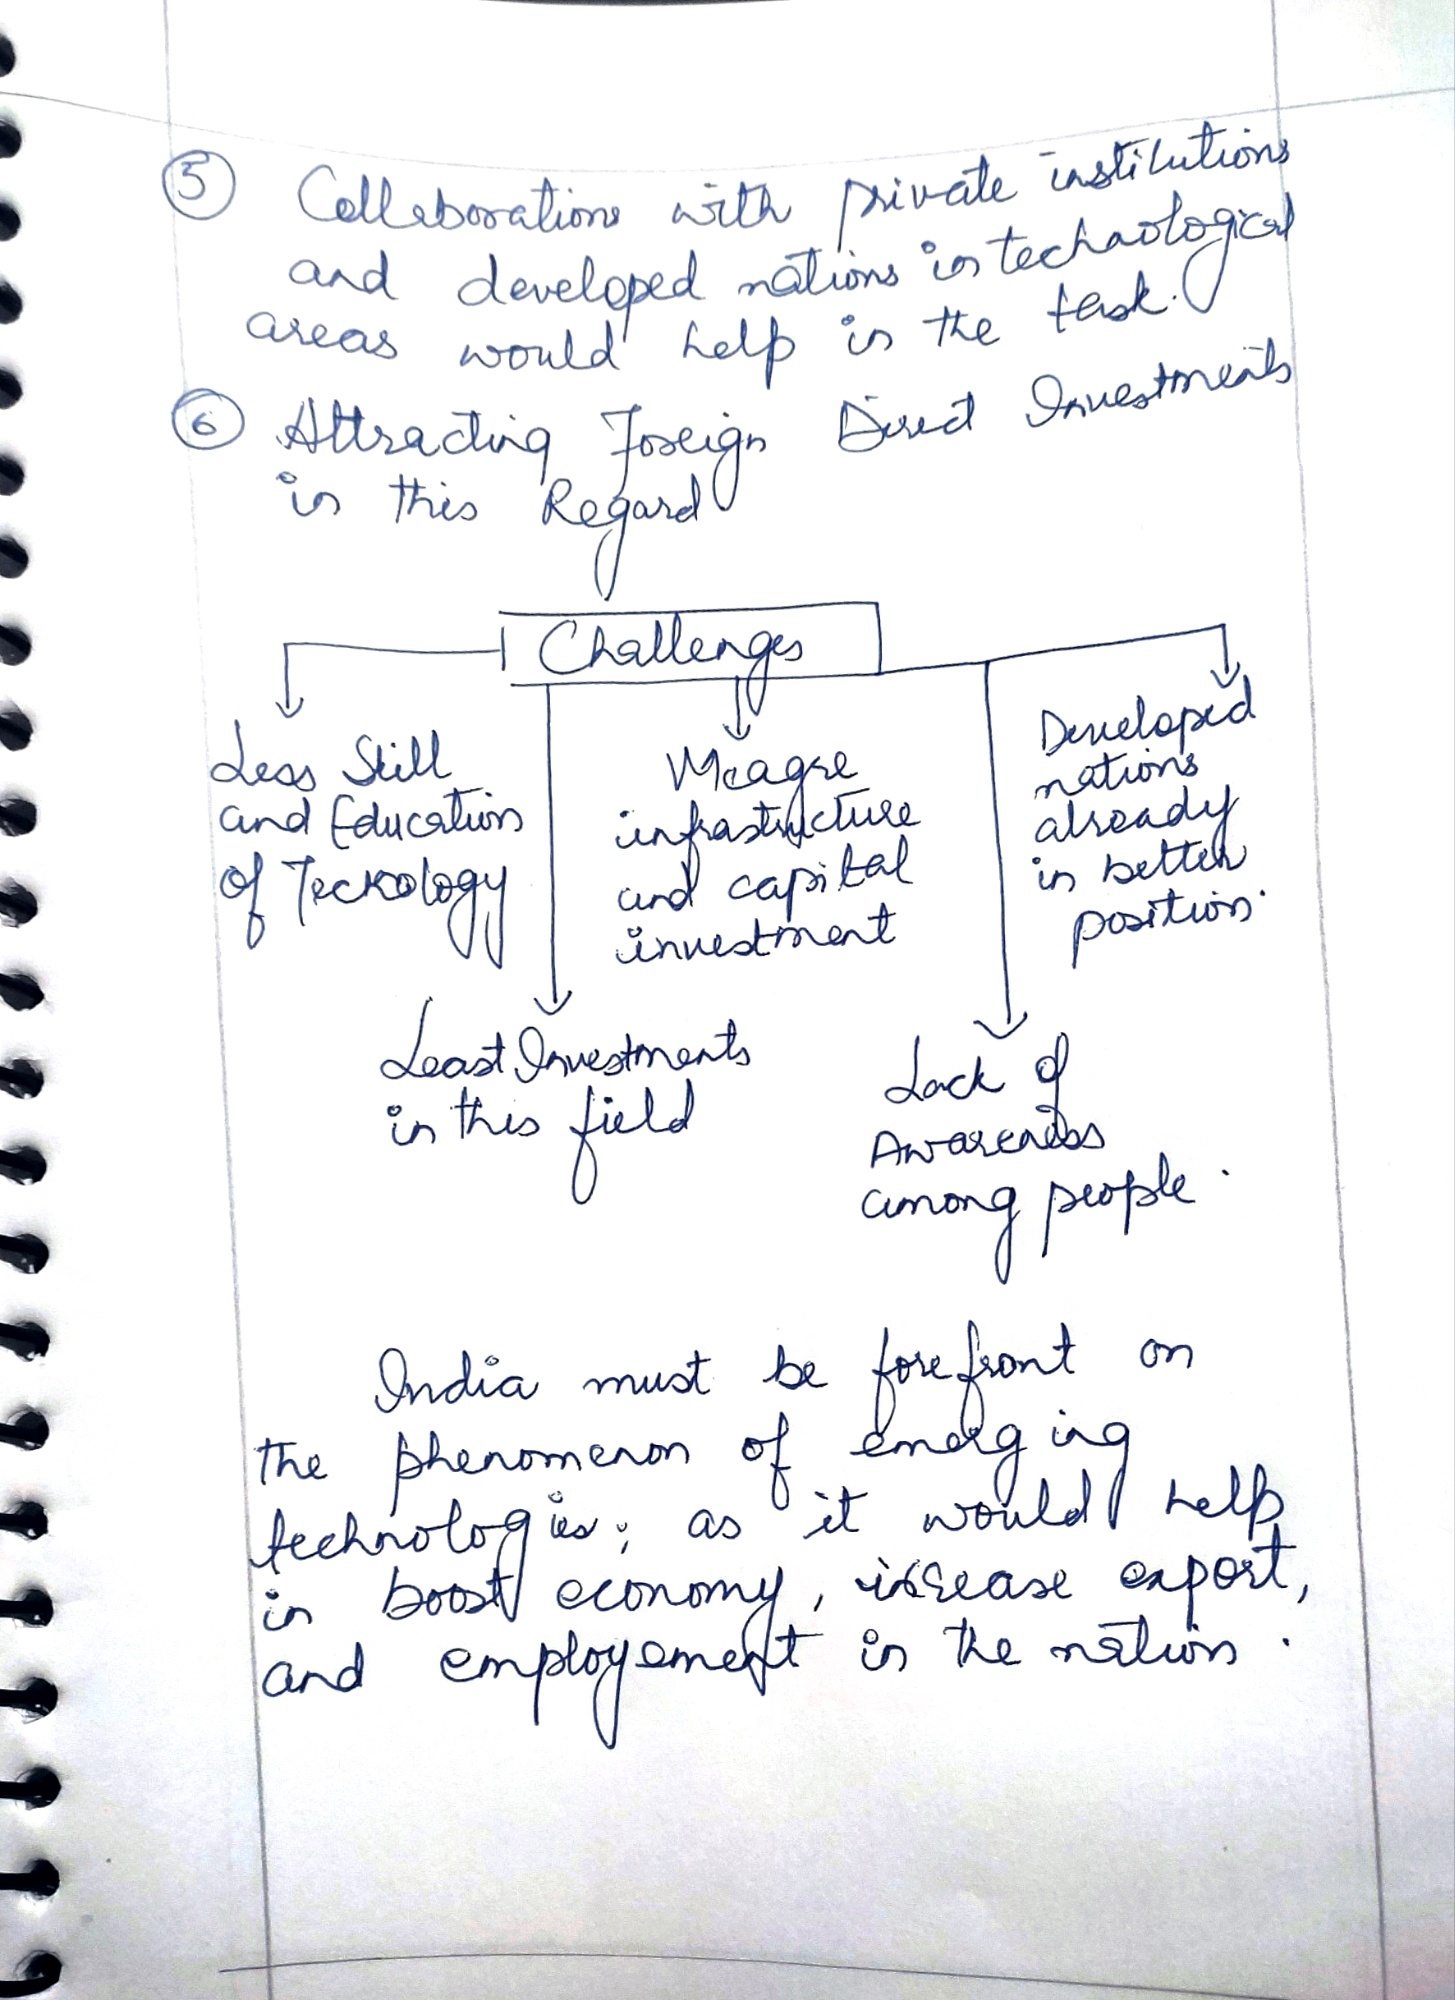 5 Collaborations with private institutions
and developed nations in technological
areas would help in the task.
6 Attracting Foreign Direct Investments
in this Regard
Challenges
Less Skill
and Education
of Tecknology
Least Investments
in this field
Meagre
infrastructure
and capital
investment
Lack of
Awareness
among people.
Developed
nations
already
in better
position.
India must be forefront on
the phenomenon of emerging
technologies; as it would help
in boost economy, increase export,
and employement in the nation.